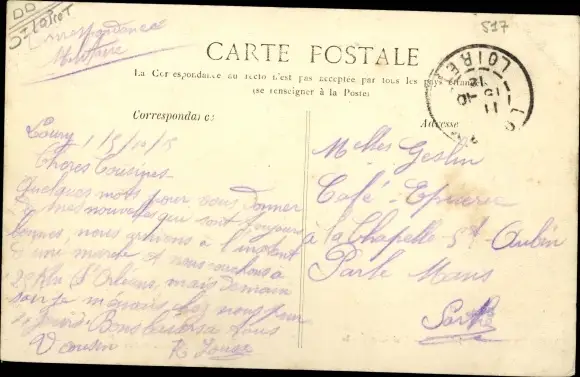 St Laurent
Correspondance
Militaire
517
CARTE POSTALE
La Correspondance au recto n'est pas acceptée par tous les pays étrangers
(se renseigner à la Poste)
Correspondance
Adresse
LOIRET
Loury 1/5/10/15
Chères Cousines
Quelques mots pour vous donner
de mes nouvelles que sont toujours
bonnes, nous arrivons à l'instant
d'une marche et nous couchons à
25 Km d'Orléans, mais demain
soir je
chez nous pour
4 jours. Bons baisers à tous
V cousin
R.
Melles Geslin
Café-Epicerie
à la Chapelle-St Aubin
Par le Mans
Sarthe